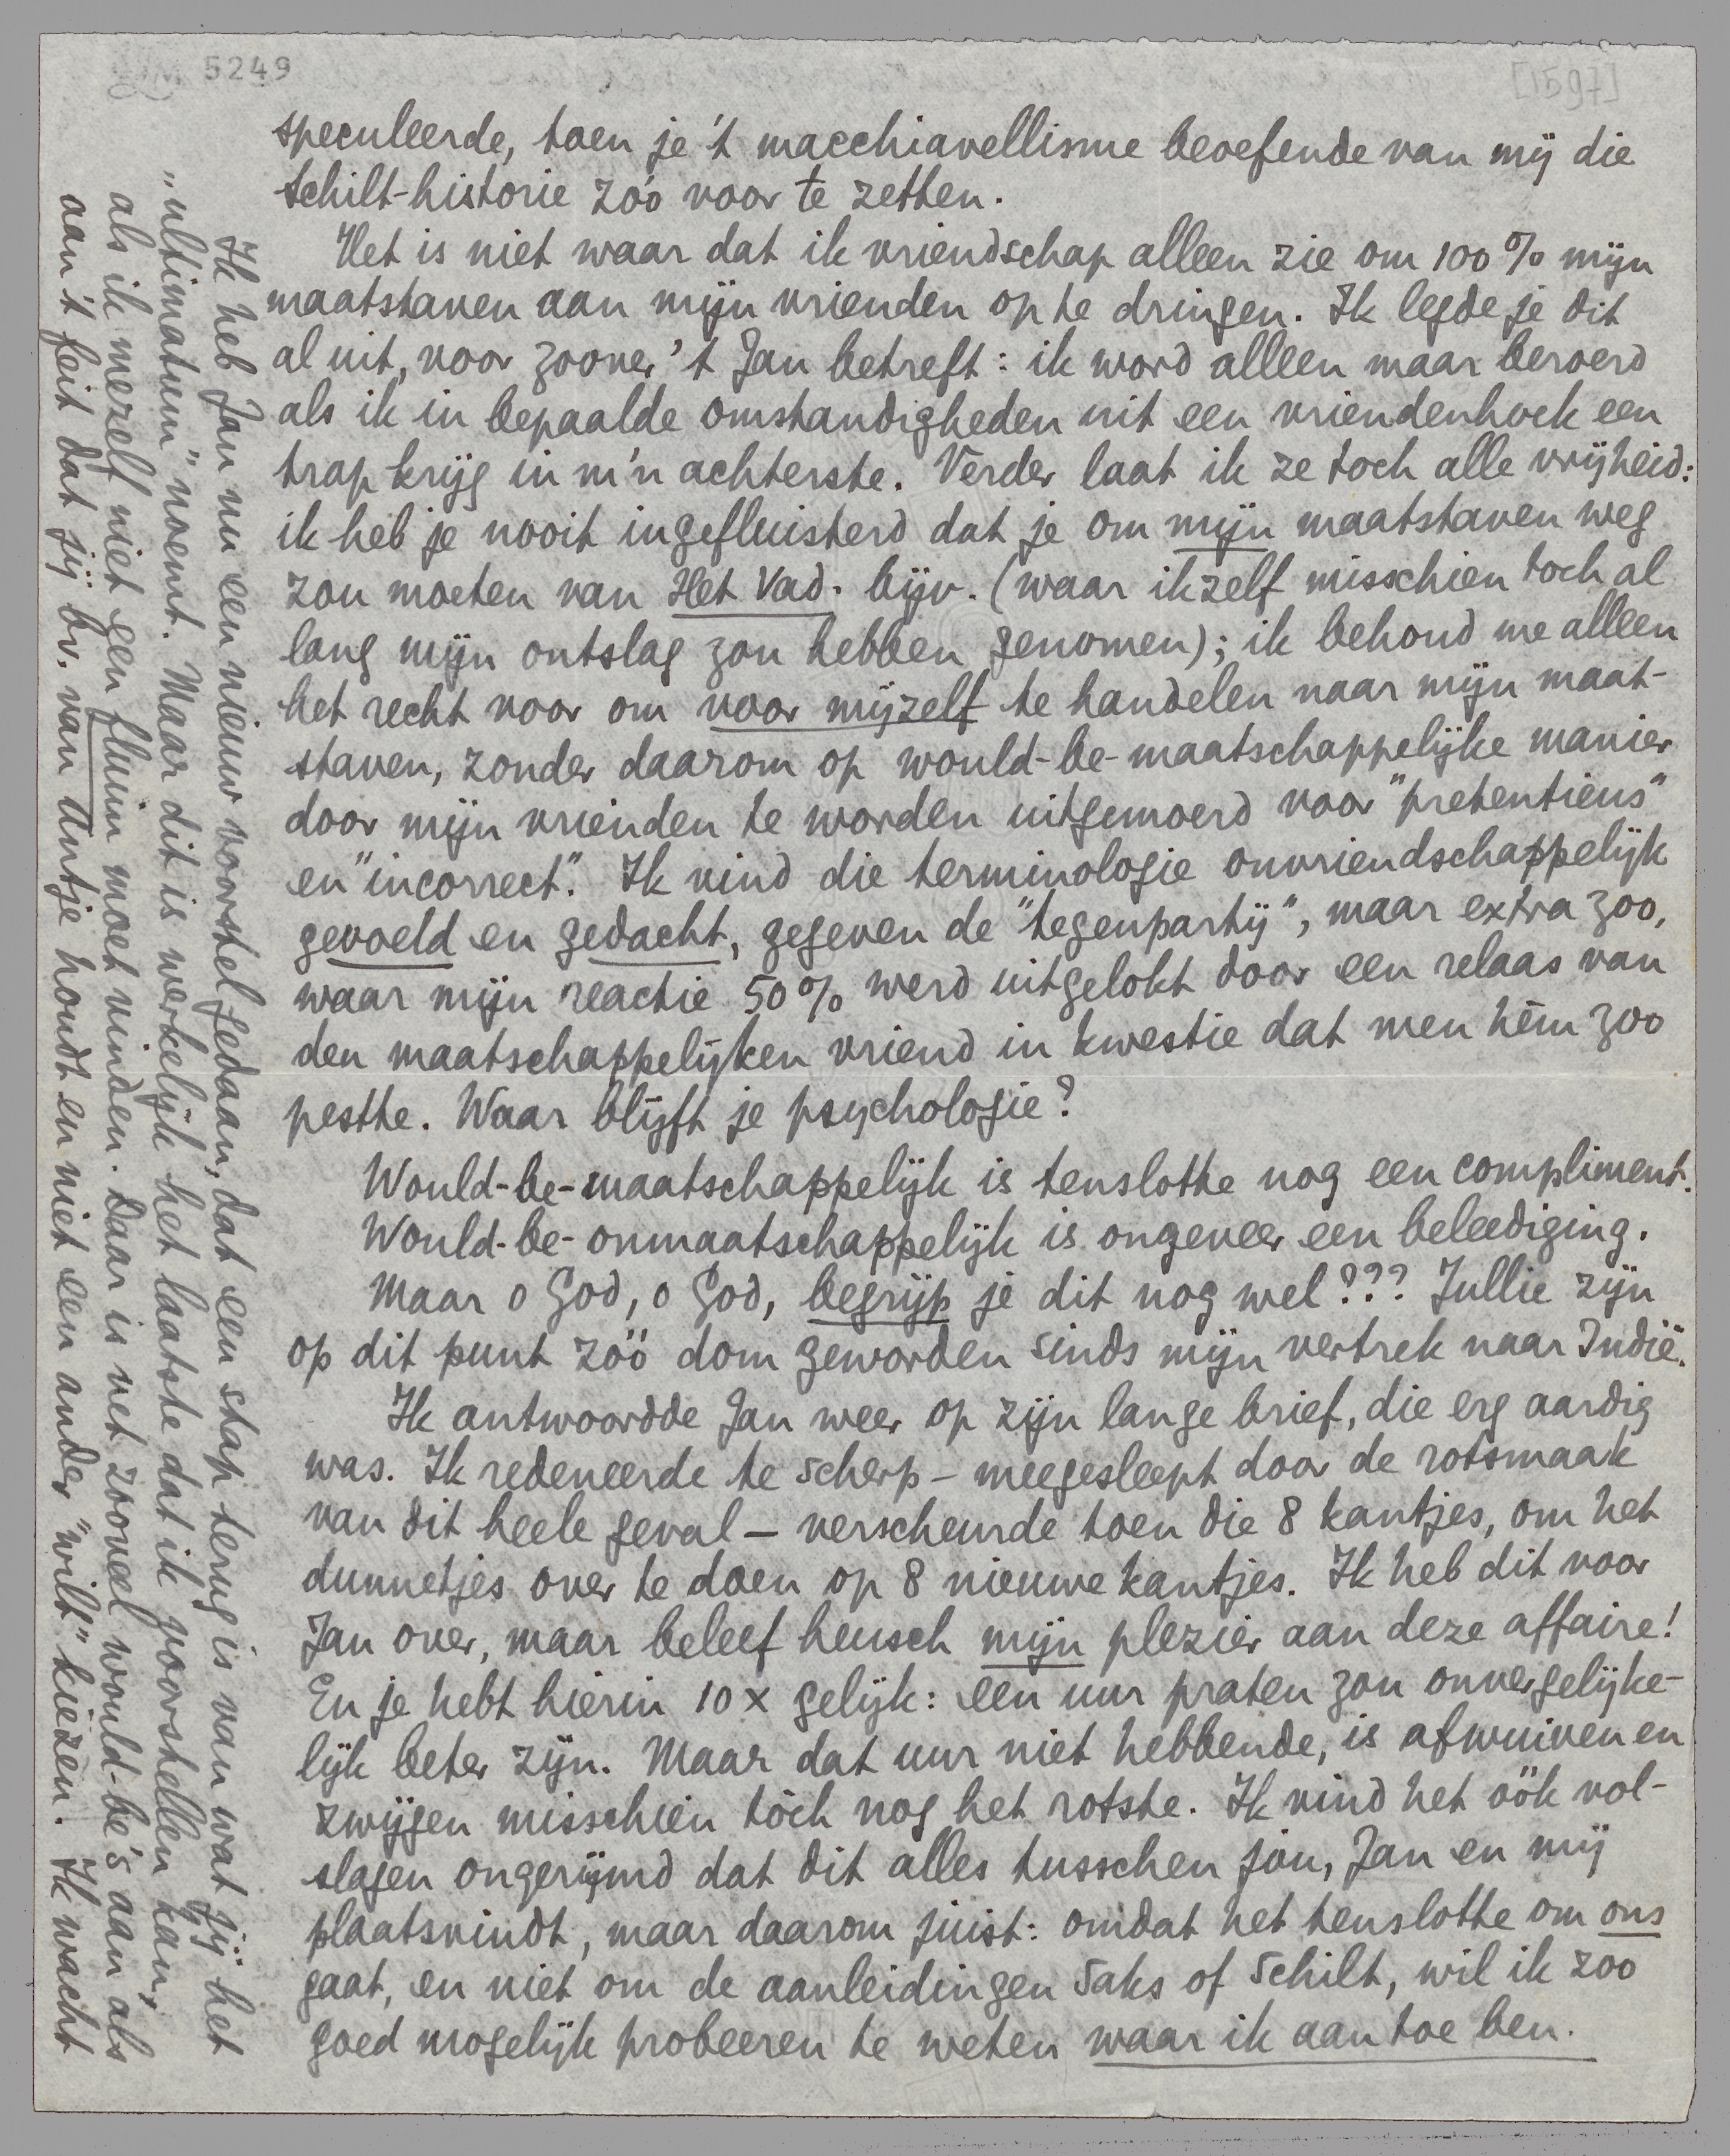 5249
[1597]
speculeerde, toen je 't macchiavellisme beoefende van mij die
Schilt-historie zóó voor te zetten.
Het is niet waar dat ik vriendschap alleen zie om 100% mijn
maatstaven aan mijn vrienden op te dringen. Ik legde je dit
al uit, voor zoover 't Jan betreft: ik word alleen maar beroerd
als ik in bepaalde omstandigheden uit een vriendenhoek een
trap krijg in m'n achterste. Verder laat ik ze toch alle vrijheid:
ik heb je nooit ingefluisterd dat je om mijn maatstaven weg
zou moeten van Het Vad. bijv. (waar ikzelf misschien toch al
lang mijn ontslag zou hebben genomen); ik behoud me alleen
het recht voor om voor mijzelf te handelen naar mijn maat-
staven, zonder daarom op would-be-maatschappelijke manier
door mijn vrienden te worden uitgemoerd voor "pretentieus"
en "incorrect". Ik vind die terminologie onvriendschappelijk
gevoeld en gedacht, gegeven de "tegenpartij", maar extra zoo,
waar mijn reactie 50% werd uitgelokt door een relaas van
den maatschappelijken vriend in kwestie dat men hèm zoo
pestte. Waar blijft je psychologie?
Would-be-maatschappelijk is tenslotte nog een compliment.
Would-be-onmaatschappelijk is ongeveer een beleediging.
Maar o God, o God, begrijp je dit nog wel??? Jullie zijn
op dit punt zóó dom geworden sinds mijn vertrek naar Indië.
Ik antwoordde Jan weer op zijn lange brief, die erg aardig
was. Ik redeneerde te scherp - meegesleept door de rotsmaak
van dit heele geval - verscheurde toen die 8 kantjes, om het
dunnetjes over te doen op 8 nieuwe kantjes. Ik heb dit voor
Jan over, maar beleef heusch mijn plezier aan deze affaire!
En je hebt hierin 10 x gelijk: een uur praten zou onvergelijke-
lijk beter zijn. Maar dat uur niet hebbende, is afwuiven en
zwijgen misschien tòch nog het rotste. Ik vind het óók vol-
slagen ongerijmd dat dit alles tusschen jou, Jan en mij
plaatsvindt, maar daarom juist: omdat het tenslotte om ons
gaat, en niet om de aanleidingen Saks of Schilt, wil ik zoo
goed mogelijk probeeren te weten waar ik aan toe ben.
Ik heb Jan nu een nieuw voorstel gedaan, dat een stap terug is van wat jij het
"ultimatum" noemt. Maar dit is werkelijk het laatste dat ik voorstellen kan,
als ik mezelf niet een fluim moet vinden. Daar is net zooveel would-be's aan als
aan 't feit dat jij bv. van Antje houdt en niet een ander "wilt" kiezen. Ik wacht